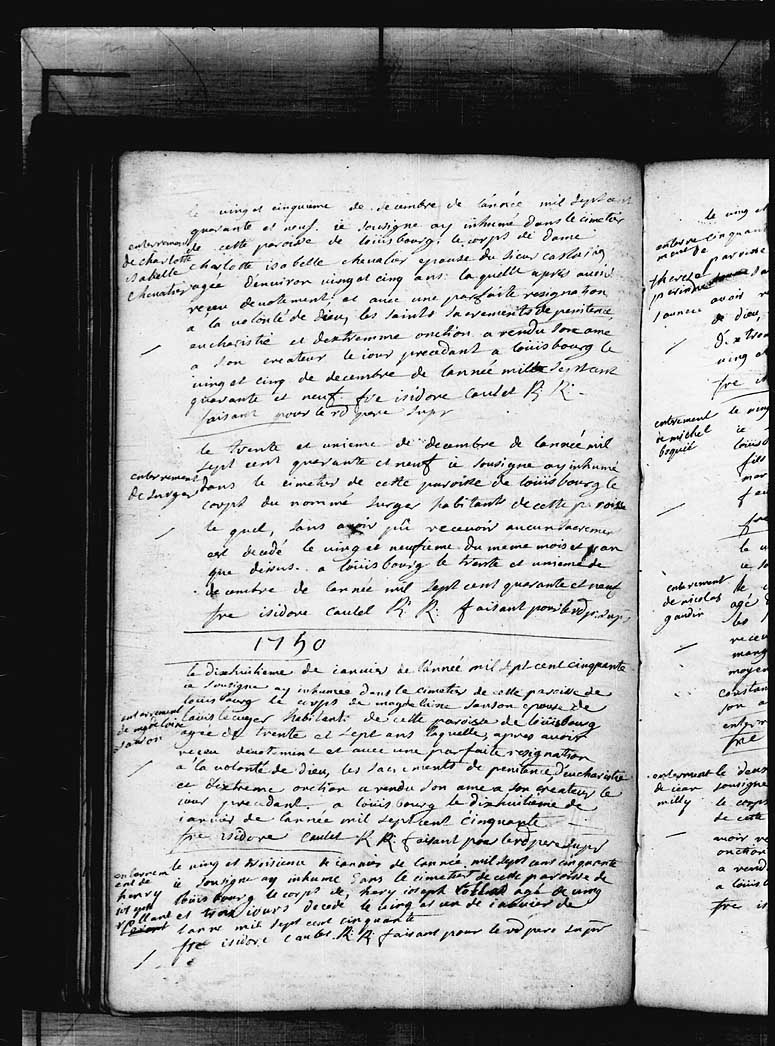 le vingt cinquieme de decembre de lannée mil sept cent
quarante et neuf. ie sousigne ay inhumé dans le cimeter
enterrement de charlotte isabelle chevalier
de cette paroisse de loüisbourg, le corps de dame
charlotte isabelle chevalier epouse du sieur
agée d'environ vingt cinq ans. la quelle apres avoir
receu devotement et avec une parfaite resignation
a la volonté de dieu, les saints sacrements de penitence
eucharistie et dextremme onction a rendu son ame
a son createur le iour precedant a loüisbourg le
vingt cinq de decembre de lannée mille sept cent
quarante et neuf. fre isidore caulet R R.
faisant pour le rd pere supr
le trente et unieme de decembre de lannée mil
sept cent quarante et neuf ie sousigne ay inhumé
enterrement de surger
dans le cimeter de cette paroisse de loüisbourg le
corps du nommé surger habitants de cette paroisse
le quel, sans avoir pû recevoir aucun sacremen
est decedé le vingt et neufieme du meme mois et an
que desus. a loüisbourg le trente et unieme de
decembre de lannée mil sept cent quarante et neuf
fre isidore caulet R. R. faisant pour le rd pr. supr
1750
le dixhuitieme de ianvier de lannée mil sept cent cinquante
ie sousigne ay inhumée dans le cimeter de cette paroisse de
louisbourg le corps de magdeleine sanson epouse de
enterrement de magdeleine sanson
habitants de cette paroisse de loüisbourg
agée de trente et sept ans laquelle, apres avoir
receu devotement et avec une parfaite resignation
a la volonté de dieu, les sacrements de penitence, d'eucharistie
et d'extreme onction a rendu son ame a son createur le
iour precedant. a loüisbourg le dixhuitieme de
ianvier de lannée mil sept cent cinquante
fre isidore caulet R R. faisant pour le rd pere supr
enterrement de henry ioseph
le vingt et troisieme de ianvier de lannée, mil sept cent cinquante
ie sousigne ay inhumé dans le cimeter de cette paroisse de
loüisbourg le corps de, henry ioseph agé de vingt
et trois iours decedé le vingt et un de ianvier de
lanne mil sept cent cinquante
fre isidore caulet. R. R. faisant pour le rd pere supr
le vingt et
enterrement de
cinquant
therese
paroisse
avoir r
de dieu,
d'extrem
vingt et
fre is
enterrement de michel
le ving
ie
louisb
fils
mar
fre
enterrement de nicolas
le v
ie so
le c
agé d
les
receu
moyen
constan
son a
enterr
fre
enterrement de iean milly
le deux
sousigne
le corps
de cette
avoir re
onction
a rendu
a loüis
fre is